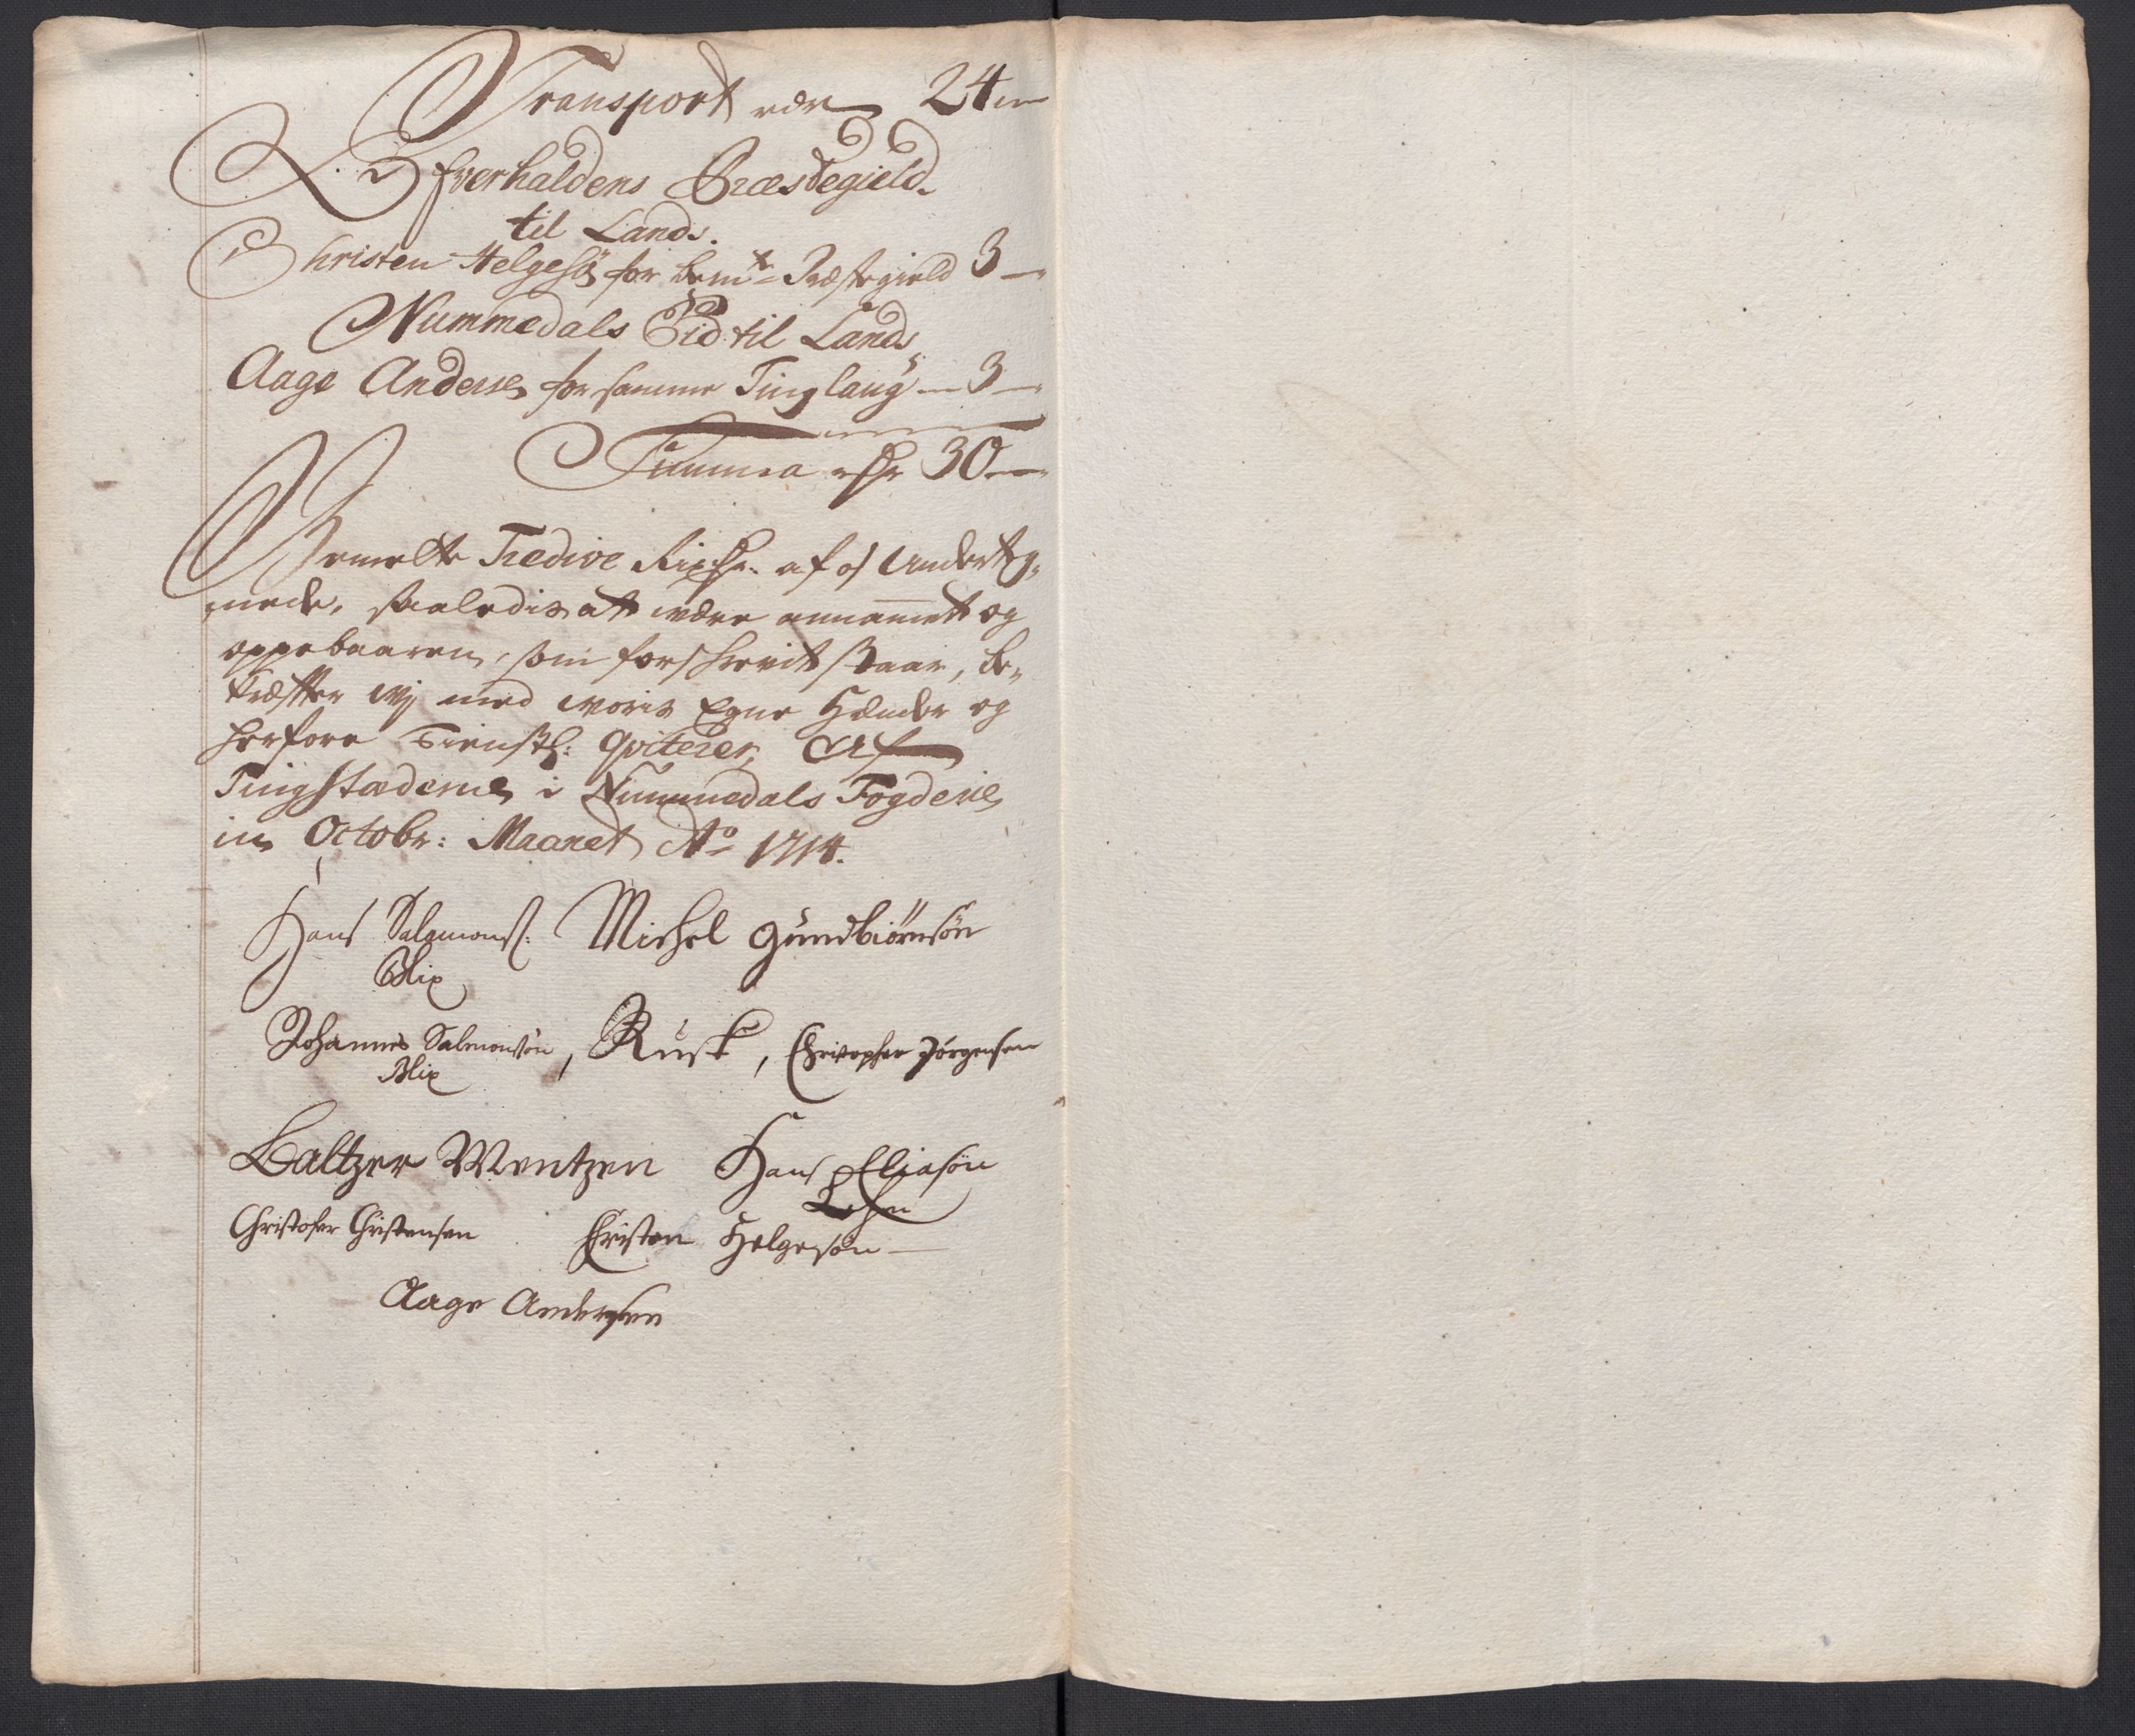 Transport rdr 24 —
Ofverhaldens Præstegield
til Lands.
Christen Helgesøn for bemte Præstegield 3 —
Nummedals Eid til Lands
Aage Andersen for samme Tinglaug — 3 —
Summa rdr 30 —
Bemelte Tredive Rixdr. af os Underteg-
nede, saaledis at være annammet og
oppebaaren, som forschrevit staar, be-
kræffter wj med woris Egne Hænder og
herfore Tienstl: qviterer, Af
Tingstæderne i Nummedals Fogderie
in Octobr: Maanet Ao 1714.
Hans Salamons: Michel Gundbiørnsøn
Blix
Johannes Salmonsøn, Rusk, Christopher Jørgensen
Blix
Baltzer Wentzen Hans Eliasøn
Lehn
Christofer Christensen Christen Helgesøn —
Aage Andersen